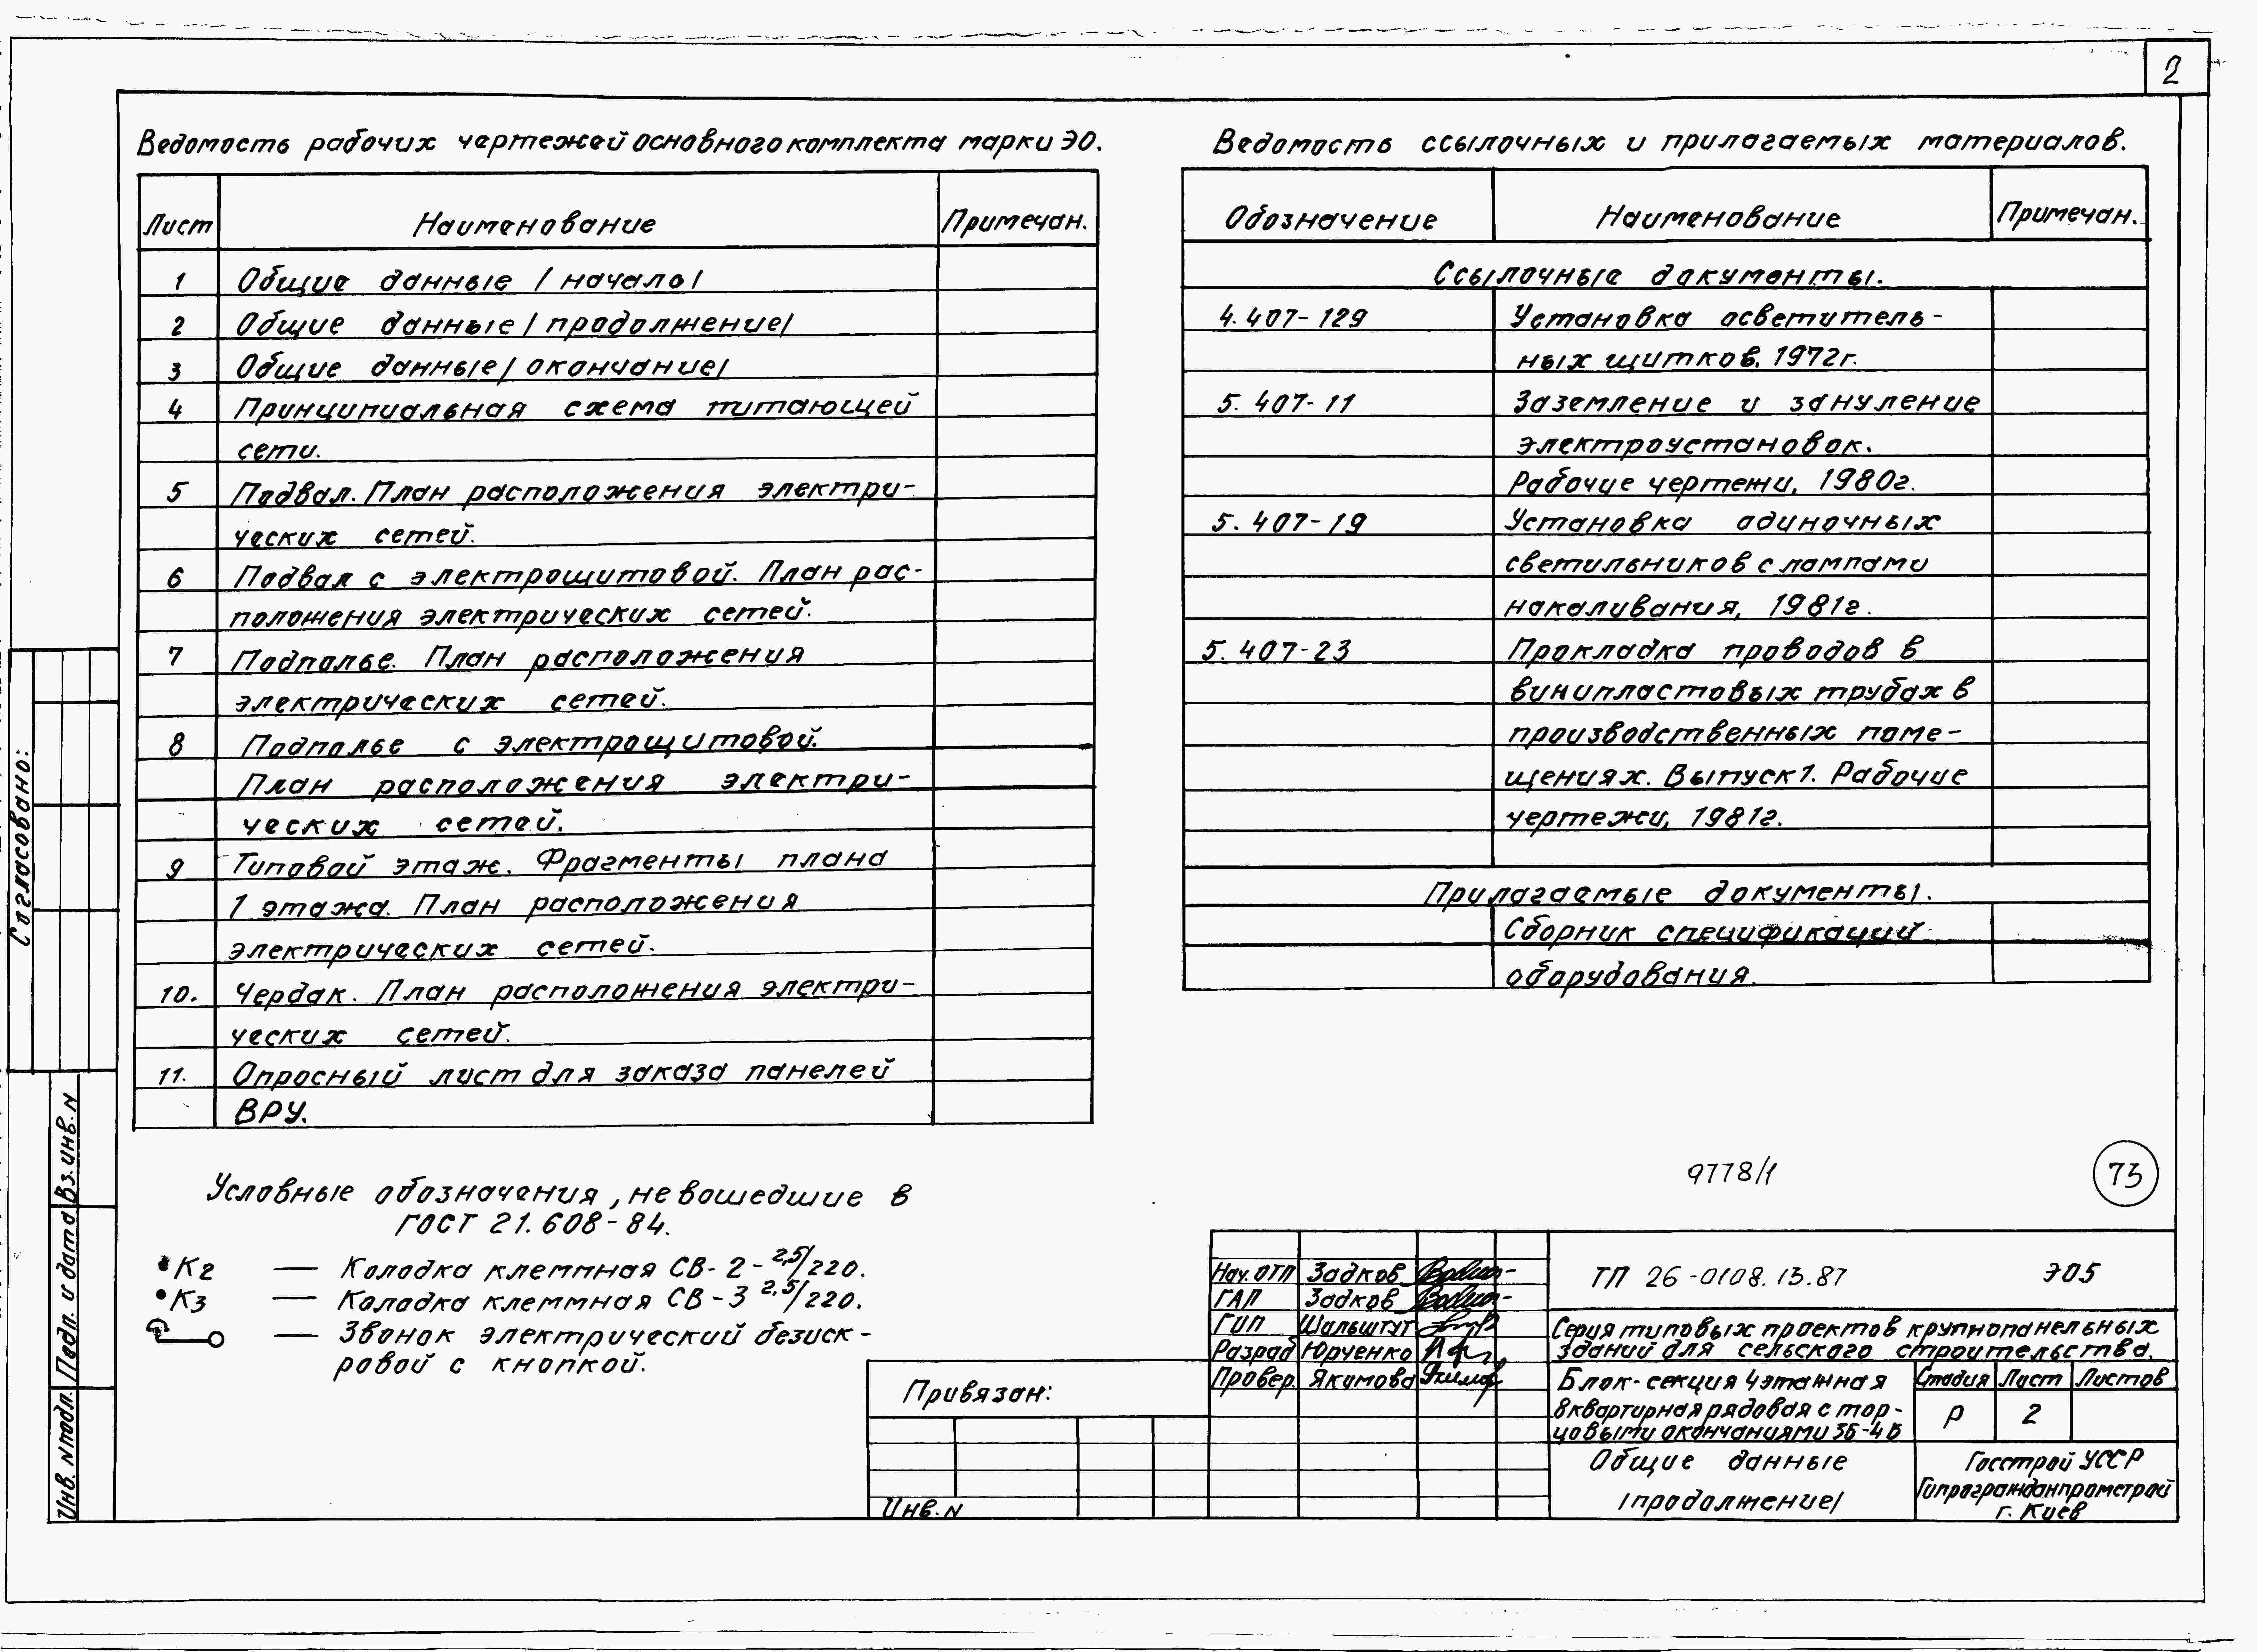 2
Ведомость рабочих чертежей основного комплекта марки ЭО.
Лист Наименование Примечан.
1 Общие данные /начало/
2 Общие данные /продолжение/
3 Общие данные /окончание/
4 Принципиальная схема питающей
сети.
5 Подвал. План расположения электри-
ческих сетей.
6 Подвал с электрощитовой. План рас-
положения электрических сетей.
7 Подполье. План расположения
электрических сетей.
8 Подполье с электрощитовой.
План расположения электри-
ческих сетей.
9 Типовой этаж. Фрагменты плана
1 этажа. План расположения
электрических сетей.
10. Чердак. План расположения электри-
ческих сетей.
11. Опросный лист для заказа панелей
ВРУ.
Ведомость ссылочных и прилагаемых материалов.
Обозначение Наименование Примечан.
Ссылочные документы.
4.407-129 Установка осветитель-
ных щитков. 1972г.
5.407-11 Заземление и зануление
электроустановок.
Рабочие чертежи, 1980г.
5.407-19 Установка одиночных
светильников с лампами
накаливания, 1981г.
5.407-23 Прокладка проводов в
винипластовых трубах в
производственных поме-
щениях. Выпуск 1. Рабочие
чертежи, 1981г.
Прилагаемые документы.
Сборник спецификаций
оборудования.
Условные обозначения, не вошедшие в
ГОСТ 21.608-84.
К2 — Колодка клеммная СВ-2-2,5/220.
К3 — Колодка клеммная СВ-3 2,5/220.
— Звонок электрический безиск-
ровой с кнопкой.
9778/1
73
Согласовано:
Инв. N подл. Подп. и дата Вз. инв. N
Привязан:
Инв. N
Нач. ОТП Задков
ГАП Задков
ГИП Шальштут
Разраб Юрченко
Провер. Якимова
ТП 26-0108.13.87 ЭО5
Серия типовых проектов крупнопанельных
зданий для сельского строительства.
Блок-секция 4этажная
8квартирная рядовая с тор-
цовыми окончаниями 3Б-4Б
Стадия Лист Листов
Р 2
Общие данные
/продолжение/
Госстрой УССР
Гипрогражданпромстрой
г. Киев